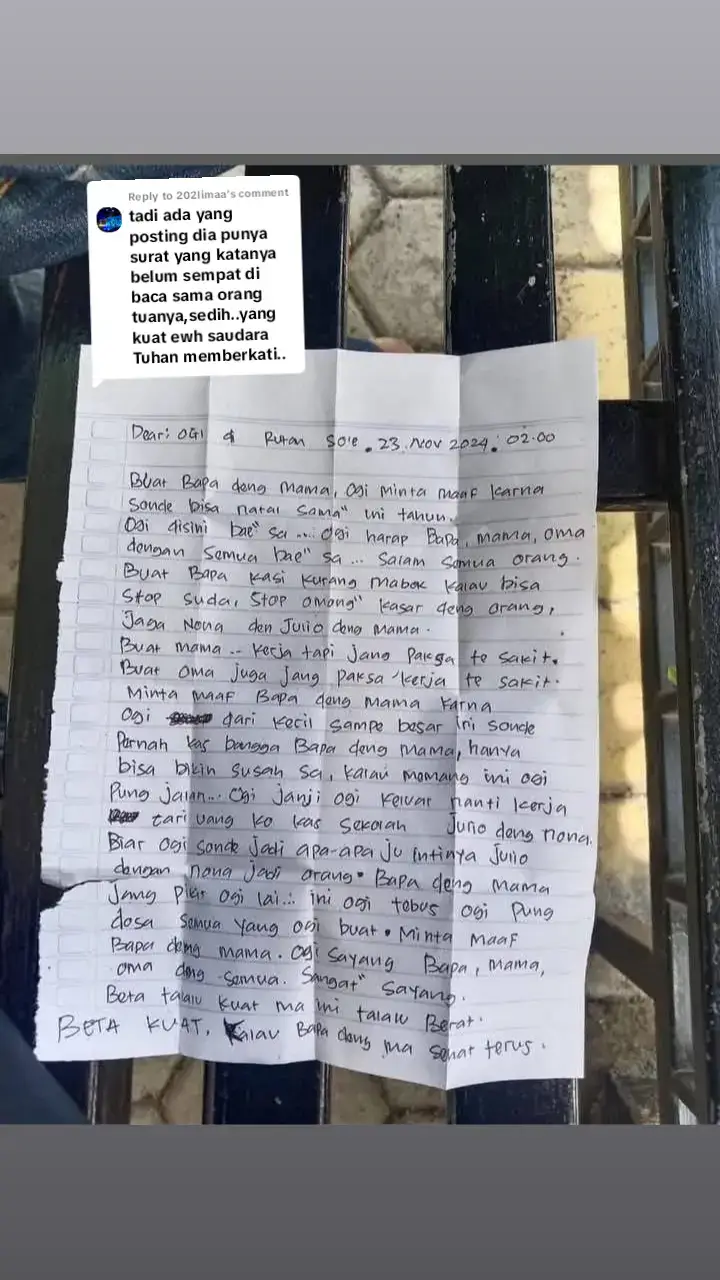 Reply to 202limaa's comment
tadi ada yang
posting dia punya
surat yang katanya
belum sempat di
baca sama orang
tuanya,sedih..yang
kuat ewh saudara
Tuhan memberkati..
Dear: OGI di Rutan So'e. 23. Nov 2024. 02.00
Buat Bapa deng mama, Ogi minta maaf karna
Sonde bisa natal sama" ini tahun.
Ogi disini bae" sa.... Ogi harap Bapa, mama, oma
dengan Semua bae" sa... Salam Semua orang.
Buat Bapa kasi kurang mabok kalau bisa
Stop suda, Stop omong" kasar deng orang,
Jaga Nona den Julio deng mama.
Buat mama... kerja tapi jang paksa te sakit.
Buat oma juga jang paksa kerja te sakit.
Minta maaf Bapa deng mama karna
Ogi dari kecil sampe besar ini sonde
Pernah kas bangga Bapa deng mama, hanya
bisa bikin susah sa, kalau memang ini ogi
Pung jalan... Ogi janji ogi keluar nanti kerja
tari uang ko kas sekolah Julio deng nona.
Biar ogi sonde jadi apa-apa ju intinya Julio
dengan nona jadi orang. Bapa deng mama
Jang pikir ogi lai... ini ogi tebus ogi pung
dosa semua yang ogi buat. Minta maaf
Bapa deng mama. Ogi sayang Bapa, mama,
oma deng semua. Sangat" sayang.
Beta talalu kuat ma ini talalu Berat.
BETA KUAT, kalau Bapa deng ma sehat terus.